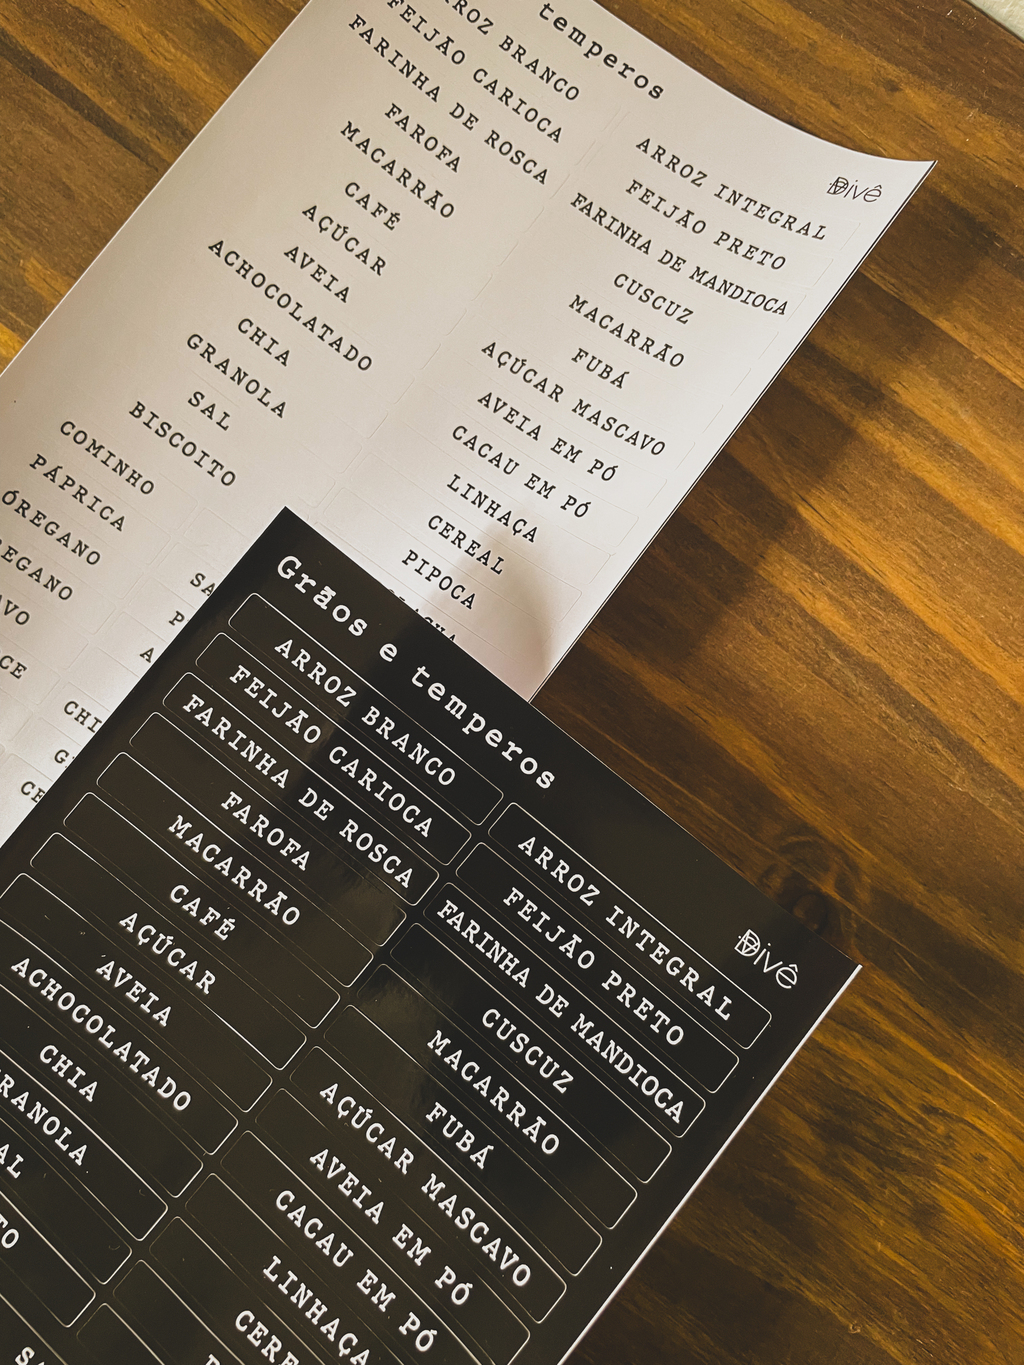 temperos
Divê
ARROZ BRANCO
FEIJÃO CARIOCA
FARINHA DE ROSCA
FAROFA
MACARRÃO
CAFÉ
AÇÚCAR
AVEIA
ACHOCOLATADO
CHIA
GRANOLA
SAL
BISCOITO
COMINHO
PÁPRICA
ÓREGANO
ARROZ INTEGRAL
FEIJÃO PRETO
FARINHA DE MANDIOCA
CUSCUZ
MACARRÃO
FUBÁ
AÇÚCAR MASCAVO
AVEIA EM PÓ
CACAU EM PÓ
LINHAÇA
CEREAL
PIPOCA
Grãos e temperos
Divê
ARROZ BRANCO
FEIJÃO CARIOCA
FARINHA DE ROSCA
FAROFA
MACARRÃO
CAFÉ
AÇÚCAR
AVEIA
ACHOCOLATADO
CHIA
RANOLA
ARROZ INTEGRAL
FEIJÃO PRETO
FARINHA DE MANDIOCA
CUSCUZ
MACARRÃO
FUBÁ
AÇÚCAR MASCAVO
AVEIA EM PÓ
CACAU EM PÓ
LINHAÇA
CERE